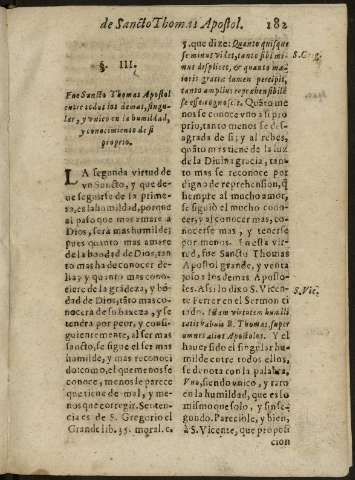 de Sancto Thomas Apostol. 182
§. III.
Fue Sancto Thomas Apostol
entre todos los demas, singu-
lar, y vnico en la humildad,
y conocimiento de si
proprio.
LA segunda virtud de
vn Sancto, y que de-
ue seguirse de la prime-
ra, es la humildad, porque
al paso que mas amare a
Dios, serà mas humilde;
pues quanto mas amare
de la bondad de Dios, tan
to mas ha de conocer de-
lla: y quanto mas cono-
ciere de la grãdeza, y bõ-
dad de Dios, tãto mas co-
nocera de su baxeza, y se
tendra por peor, y consi-
guientemente, al ser mas
sancto, se sigue el ser mas
humilde, y mas reconoci
do: como, el que menos se
conoce, menos le parece
que tiene de mal, y me-
nos que corregir. Senten-
cia es de S. Gregorio el
Grande lib. 35. moral. c.
5. que dize: Quanto quisque
se minus videt, tanto sibi mi-
nus displicet, & quanto ma-
ioris gratiæ lumen percipit,
tanto amplius reprehensibilē
se esse cognoscit. Quãto me
nos se conoce vno a si pro
prio, tanto menos se des-
agrada de si; y al rebes,
quãto mas tiene de la luz
de la Diuina gracia, tan-
to mas se reconoce por
digno de reprehension, q̃
siempre al mucho amor,
se siguiò el mucho cono-
cer, y al conocer mas, co-
nocerse mas, y tenerse
por menos. En esta vir-
tud, fue Sancto Thomas
Apostol grande, y venta
joso a los demas Aposto-
les. Asi lo dixo S. Vicen-
te Ferrer en el Sermon ci
tado.
virtutem humili
tatis habuit B. Thomas super
omnes alios Apostolos. Y el
hauer sido el singular hu-
milde entre todos ellos,
se denota con la palabra,
Vno, siendo vnico, y raro
en la humildad, que es lo
mismo que solo, y sin se-
gundo. Pareciole, y bien,
à S. Vicente, que proposi
cion
S. Greg.
S. Vic.